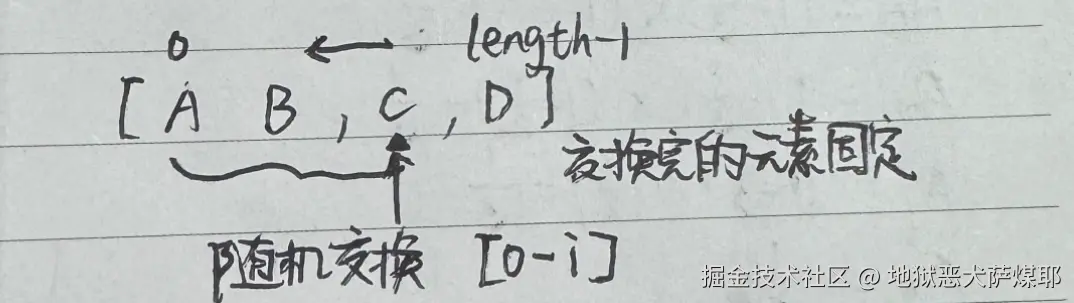 0 length-1
[A B , C , D]
交换完的元素固定
随机交换 [0-i]
掘金技术社区 @ 地狱恶犬萨煤耶